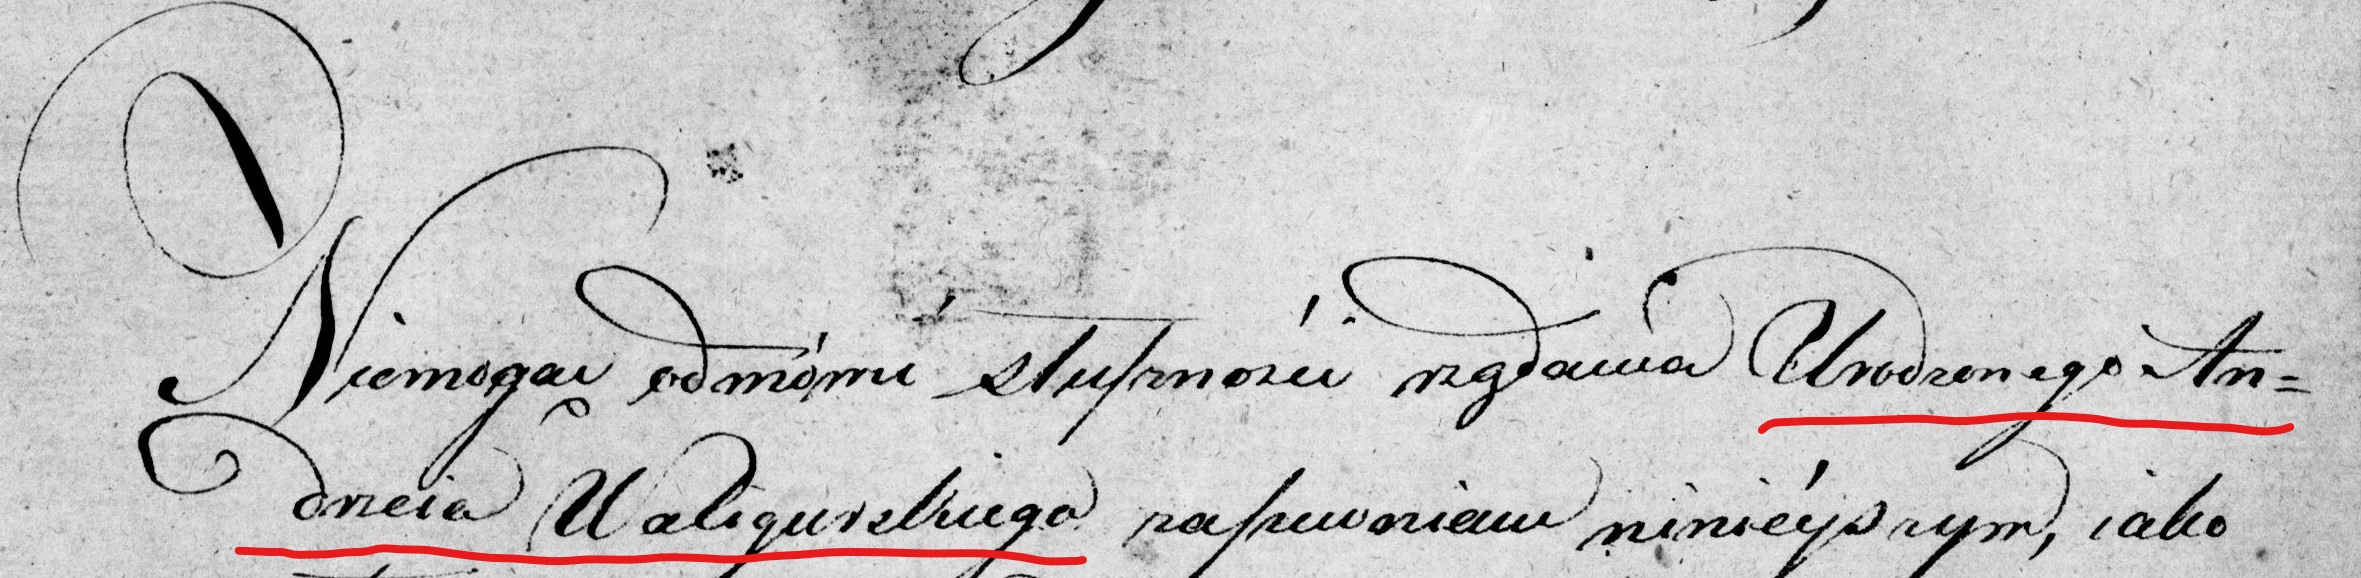 Niemogąc odmówić słuszności rządania Urodzonego An=
drzeia Waligurskiego zapewniam ninieyszym, iako